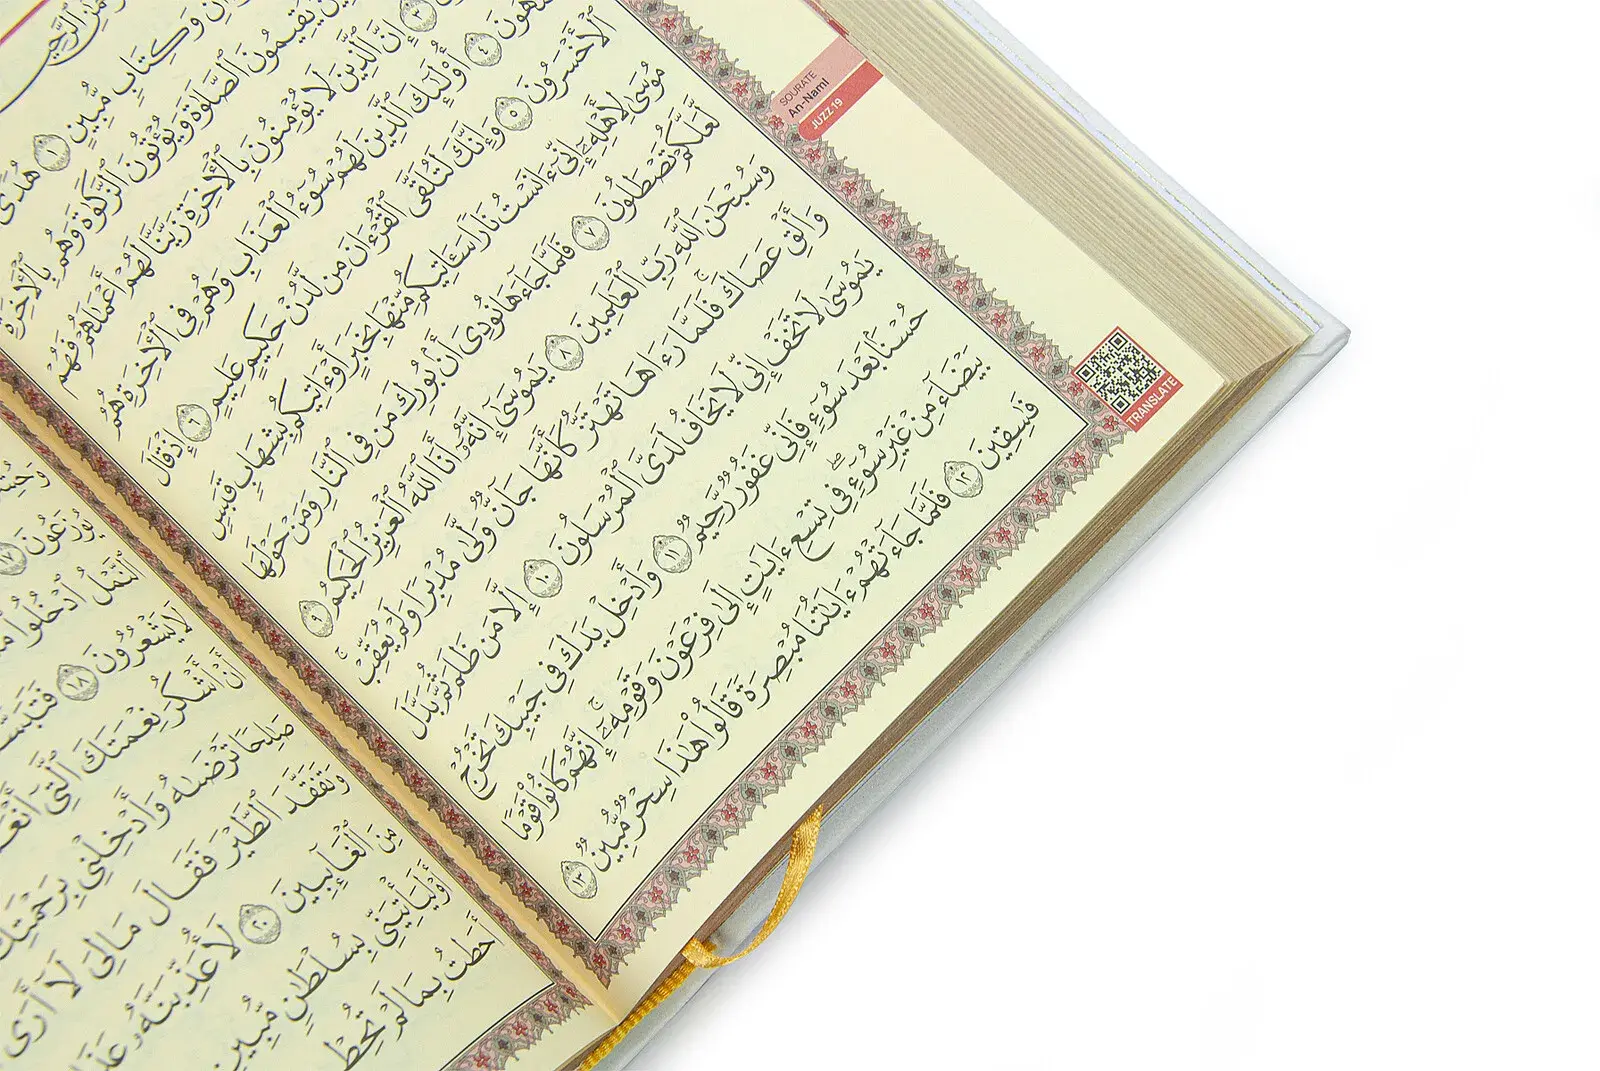 الرَّحِيمِ
وَكِتَابٍ مُّبِينٍ ١ هُدًى
يُقِيمُونَ ٱلصَّلَوٰةَ وَيُؤْتُونَ ٱلزَّكَوٰةَ وَهُم بِٱلْأَخِرَةِ
٣ إِنَّ ٱلَّذِينَ لَا يُؤْمِنُونَ بِٱلْأَخِرَةِ زَيَّنَّا لَهُمْ أَعْمَٰلَهُمْ فَهُمْ
٤ أُوْلَٰٓئِكَ ٱلَّذِينَ لَهُمْ سُوٓءُ ٱلْعَذَابِ وَهُمْ فِى ٱلْأَخِرَةِ هُمُ
ٱلْأَخْسَرُونَ ٥ وَإِنَّكَ لَتُلَقَّى ٱلْقُرْءَانَ مِن لَّدُنْ حَكِيمٍ عَلِيمٍ ٦ إِذْ قَالَ
مُوسَىٰ لِأَهْلِهِۦٓ إِنِّىٓ ءَانَسْتُ نَارًا سَـَٔاتِيكُم مِّنْهَا بِخَبَرٍ أَوْ ءَاتِيكُم بِشِهَابٍ قَبَسٍ
لَّعَلَّكُمْ تَصْطَلُونَ ٧ فَلَمَّا جَآءَهَا نُودِىَ أَنۢ بُورِكَ مَن فِى ٱلنَّارِ وَمَنْ حَوْلَهَا
وَسُبْحَٰنَ ٱللَّهِ رَبِّ ٱلْعَٰلَمِينَ ٨ يَٰمُوسَىٰٓ إِنَّهُۥٓ أَنَا ٱللَّهُ ٱلْعَزِيزُ ٱلْحَكِيمُ ٩
وَأَلْقِ عَصَاكَ ۚ فَلَمَّا رَءَاهَا تَهْتَزُّ كَأَنَّهَا جَآنٌّ وَلَّىٰ مُدْبِرًا وَلَمْ يُعَقِّبْ ۚ
يَٰمُوسَىٰ لَا تَخَفْ إِنِّى لَا يَخَافُ لَدَىَّ ٱلْمُرْسَلُونَ ١٠ إِلَّا مَن ظَلَمَ ثُمَّ بَدَّلَ
حُسْنًۢا بَعْدَ سُوٓءٍ فَإِنِّى غَفُورٌ رَّحِيمٌ ١١ وَأَدْخِلْ يَدَكَ فِى جَيْبِكَ تَخْرُجْ
بَيْضَآءَ مِنْ غَيْرِ سُوٓءٍ ۖ فِى تِسْعِ ءَايَٰتٍ إِلَىٰ فِرْعَوْنَ وَقَوْمِهِۦٓ ۚ إِنَّهُمْ كَانُوا۟ قَوْمًا
فَٰسِقِينَ ١٢ فَلَمَّا جَآءَتْهُمْ ءَايَٰتُنَا مُبْصِرَةً قَالُوا۟ هَٰذَا سِحْرٌ مُّبِينٌ ١٣
SOURATE
An-Naml
JUZZ 19
TRANSLATE
يُوزَعُونَ ١٧
ٱلنَّمْلُ ٱدْخُلُوا۟
لَا يَشْعُرُونَ ١٨
أَنْ أَشْكُرَ نِعْمَتَكَ ٱلَّتِىٓ
صَٰلِحًا تَرْضَىٰهُ وَأَدْخِلْنِى بِرَحْمَتِكَ
وَتَفَقَّدَ ٱلطَّيْرَ فَقَالَ مَا لِىَ لَآ أَرَى
مِنَ ٱلْغَآئِبِينَ ٢٠ لَأُعَذِّبَنَّهُۥ
أَوْ لَيَأْتِيَنِّى بِسُلْطَٰنٍ مُّبِينٍ
أَحَطتُ بِمَا لَمْ تُحِطْ